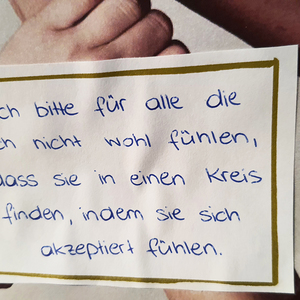 ch bitte für alle die
ch nicht wohl fühlen,
dass sie in einen Kreis
finden, indem sie sich
akzeptiert fühlen.